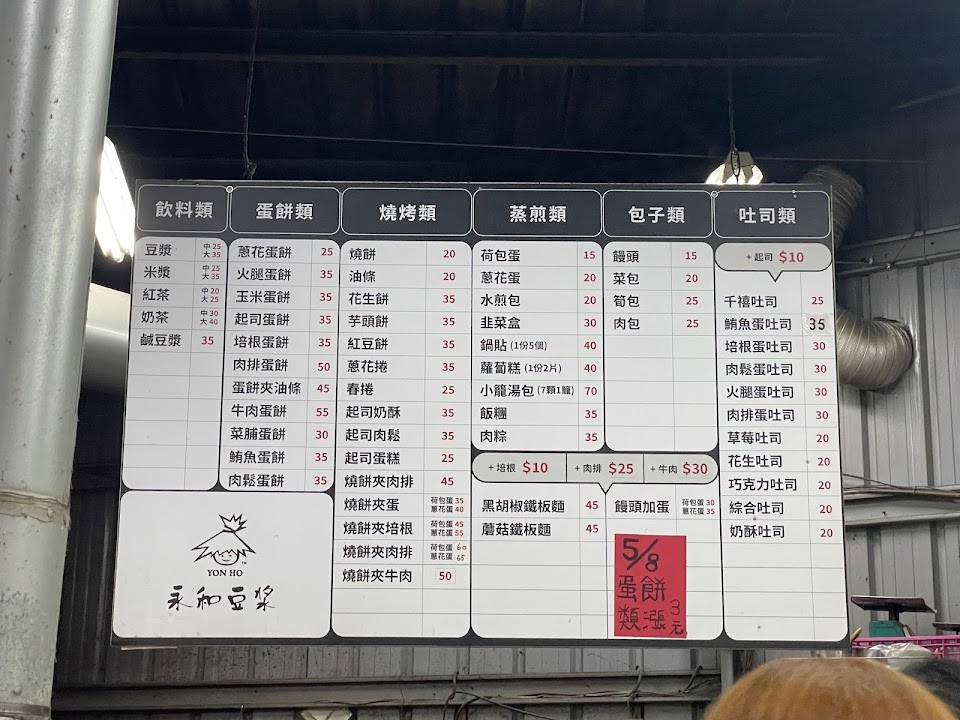 飲料類
豆漿 中25 大35
米漿 中25 大35
紅茶 中20 大25
奶茶 中30 大40
鹹豆漿 35
蛋餅類
蔥花蛋餅 25
火腿蛋餅 35
玉米蛋餅 35
起司蛋餅 35
培根蛋餅 35
肉排蛋餅 50
蛋餅夾油條 45
牛肉蛋餅 55
菜脯蛋餅 30
鮪魚蛋餅 35
肉鬆蛋餅 35
YON HO
TM
永和豆漿
燒烤類
燒餅 20
油條 20
花生餅 35
芋頭餅 35
紅豆餅 35
蔥花捲 35
春捲 25
起司奶酥 35
起司肉鬆 35
起司蛋糕 25
燒餅夾肉排 45
燒餅夾蛋 荷包蛋35 蔥花蛋40
燒餅夾培根 荷包蛋45 蔥花蛋55
燒餅夾肉排 荷包蛋60 蔥花蛋65
燒餅夾牛肉 50
蒸煎類
荷包蛋 15
蔥花蛋 20
水煎包 20
韭菜盒 30
鍋貼(1份5個) 40
蘿蔔糕(1份2片) 40
小龍湯包(7顆1籠) 70
飯糰 35
肉粽 35
+培根 $10
+肉排 $25
+牛肉 $30
黑胡椒鐵板麵 45
蘑菇鐵板麵 45
包子類
饅頭 15
菜包 20
筍包 25
肉包 25
饅頭加蛋 荷包蛋30 蔥花蛋35
5/8
蛋餅
類漲3元
吐司類
+起司 $10
千禧吐司 25
鮪魚蛋吐司 35
培根蛋吐司 30
肉鬆蛋吐司 30
火腿蛋吐司 30
肉排蛋吐司 30
草莓吐司 20
花生吐司 20
巧克力吐司 20
綜合吐司 20
奶酥吐司 20